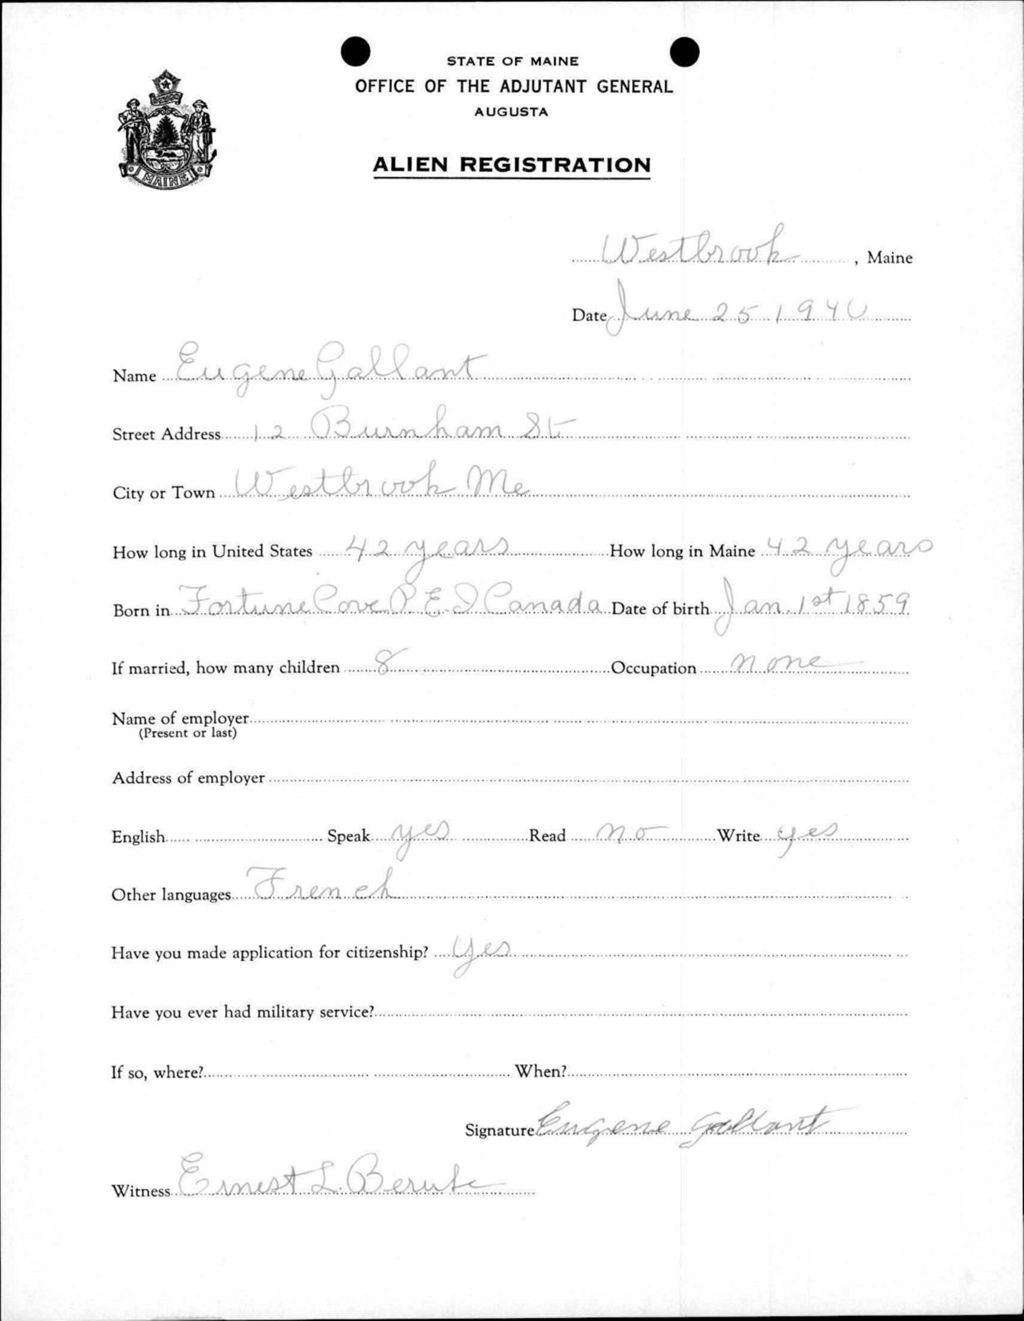 STATE OF MAINE
OFFICE OF THE ADJUTANT GENERAL
AUGUSTA
ALIEN REGISTRATION
MAINE
Westbrook, Maine
Date June 25 1940
Name Eugene Gallant
Street Address 12 Burnham St
City or Town Westbrook Me
How long in United States 42 years How long in Maine 42 years
Born in Fortune Cove P E I Canada Date of birth Jan 1st 1859
If married, how many children 8 Occupation none
Name of employer
(Present or last)
Address of employer
English Speak yes Read no Write yes
Other languages French
Have you made application for citizenship? Yes
Have you ever had military service?
If so, where? When?
Signature Eugene Gallant
Witness Ernest L. Berube